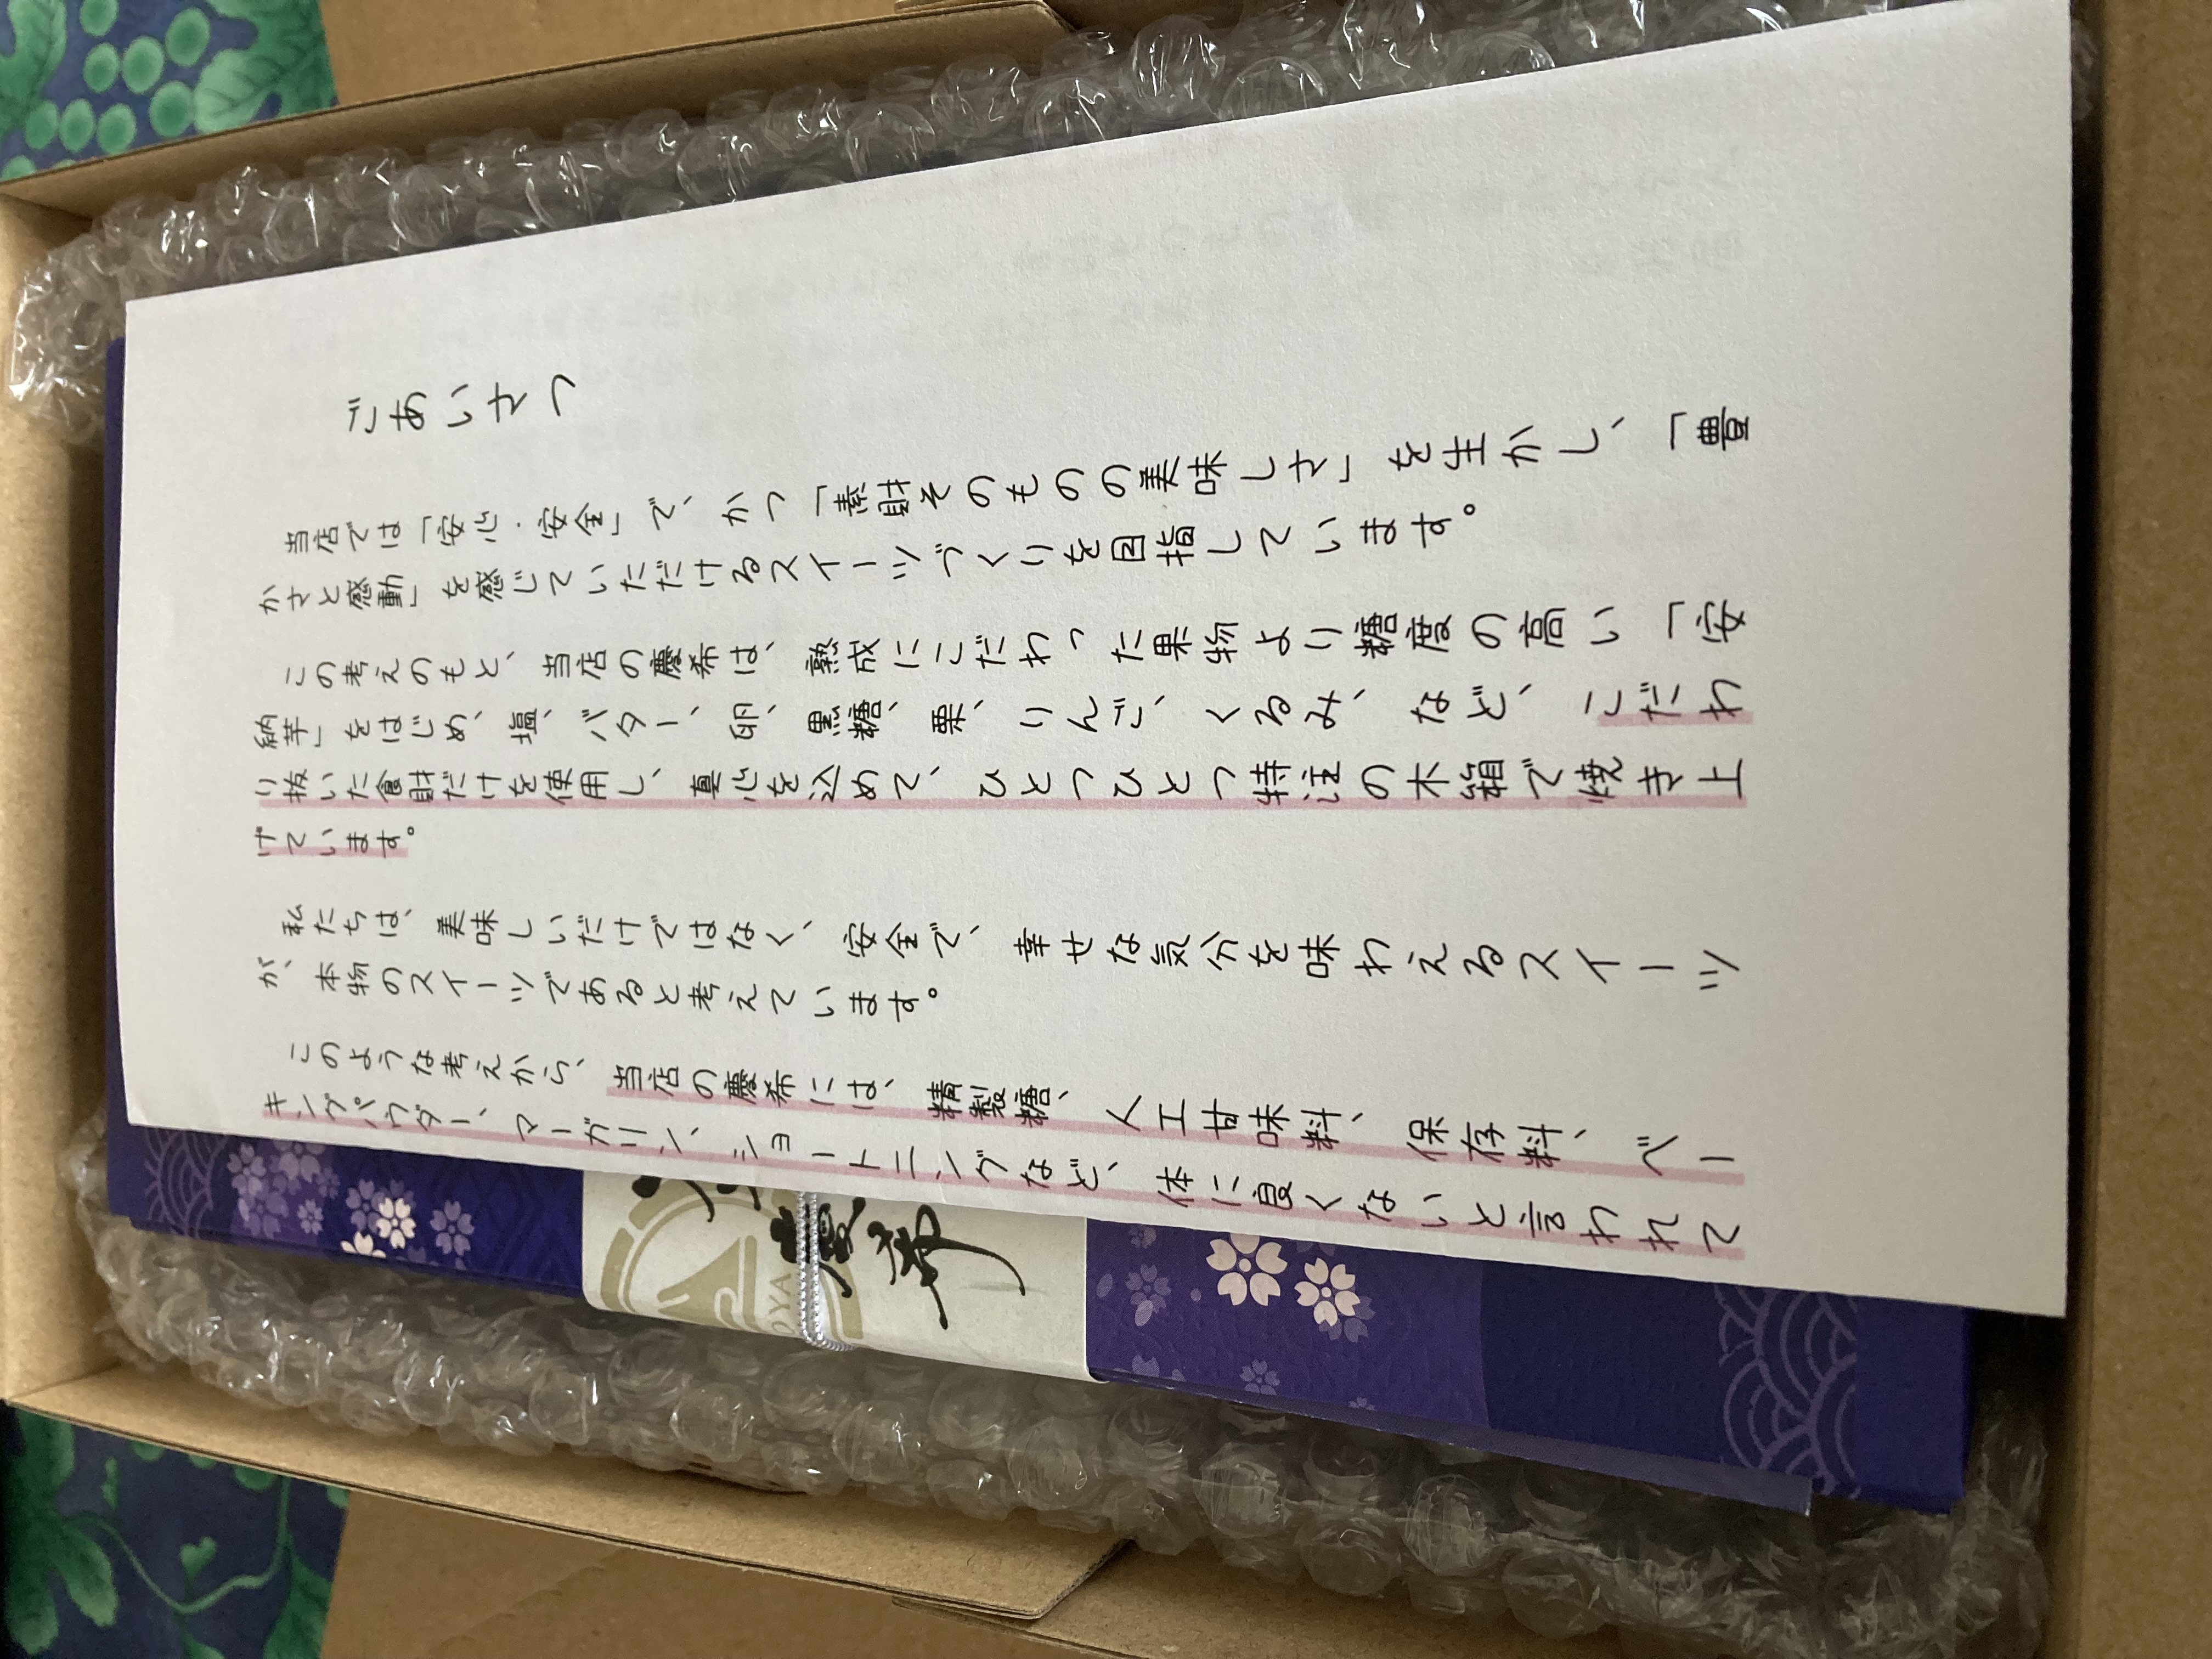 ごあいさつ
当店では「安心・安全」で、かつ「素財そのものの美味しさ」を生かし、「豊
かさと感動」を感じていただけるスイーツづくりを目指しています。
この考えのもと、当店の慶希は、熟成にこだわった果物より糖度の高い「安
納芋」をはじめ、塩、バター、卵、黒糖、栗、りんご、くるみ、など、こだわ
り抜いた食財だけを使用し、真心を込めて、ひとつひとつ特注の木箱で焼き上
げています。
私たちは、美味しいだけではなく、安全で、幸せな気分を味わえるスイーツ
が、本物のスイーツであると考えています。
このような考えから、当店の慶希には、精製糖、人工甘味料、保存料、ベー
キングパウダー、マーガリン、ショートニングなど、体に良くないと言われて
慶希